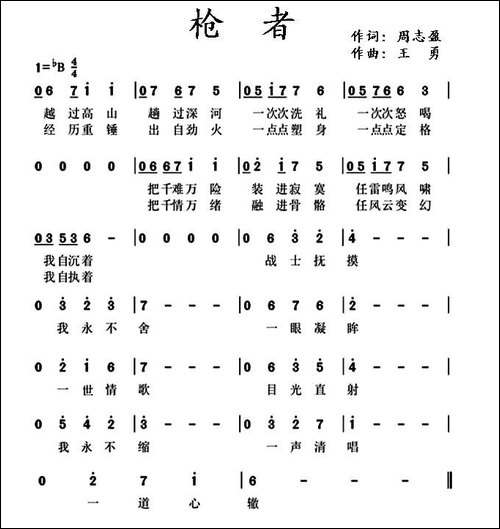 枪 者
作词：周志盈
作曲：王 勇
1=♭B 4/4
0 6 7 i i | 0 7 6 7 5 | 0 5 i 7 7 6 | 0 5 7 6 6 3 |
越 过高 山 趟 过深 河 一次次洗 礼 一次次怒 喝
经 历重 锤 出 自劲 火 一点点塑 身 一点点定 格
0 0 0 0 | 0 6 6 7 i i | 0 2̇ i 7 5 | 0 5 i 7 7 5 |
把千难万 险 装 进寂 寞 任雷鸣风 啸
把千情万 绪 融 进骨 骼 任风云变 幻
0 3 5 3 6 - | 0 0 0 0 | 0 6 3̇ 2̇ | 4̇ - - - |
我自沉着 战 士 抚 摸
我自执着
0 3̇ 2̇ 3̇ | 7 - - - | 0 6 7 6 | 2̇ - - - |
我 永 不 舍 一 眼 凝 眸
0 2̇ i 6 | 7 - - - | 0 6 3̇ 5̇ | 4̇ - - - |
一 世 情 歌 目 光 直 射
0 5̇ 4̇ 2̇ | 3̇ - - - | 0 6 7 3̇ | i - - - |
我 永 不 缩 一 声 清 唱
0 2̇ 7 i | 6 - - - ‖
一 道 心 辙